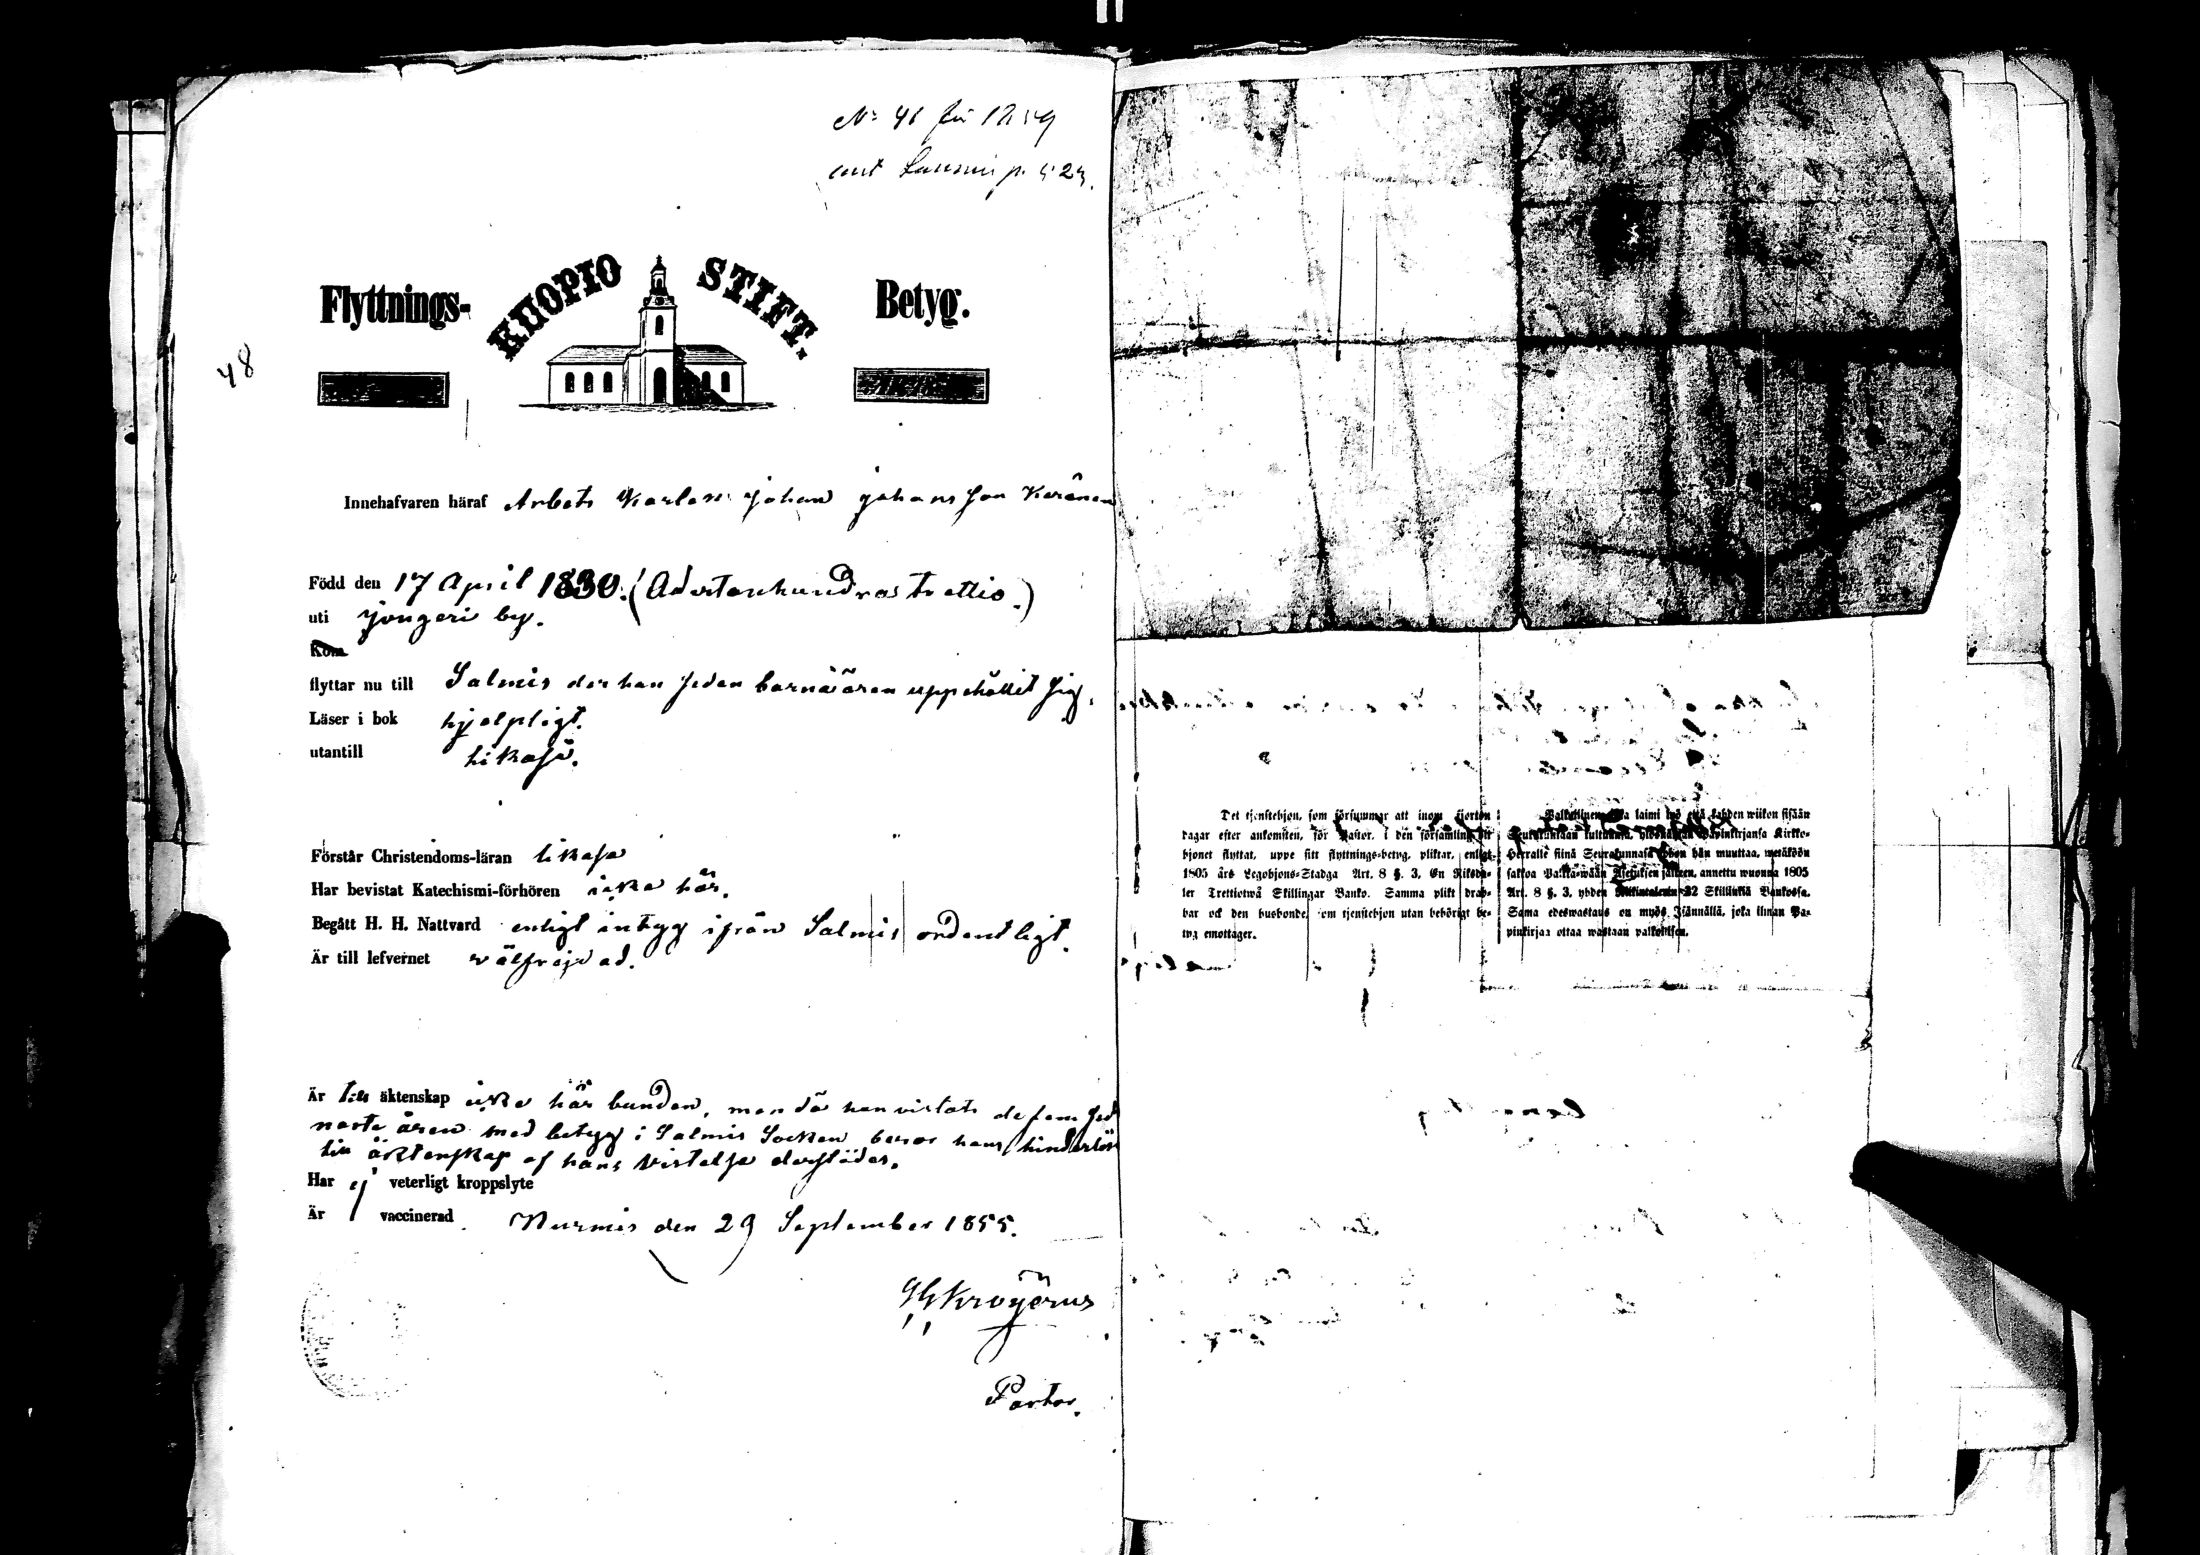 No 41 för 1859
48
Flyttnings- KUOPIO STIFT. Betyg.
Innehafvaren häraf Arbets Karlen Johan Johansson Keränen
Född den 17 April 1830. (Adertonhundrastrettio.)
uti Jongeri by.
Kom
flyttar nu till Salmis der han sedan barnaåren uppehållit sig.
Läser i bok hjelpligt.
utantill likaså.
Förstår Christendoms-läran likaså
Har bevistat Katechismi-förhören icke här.
Begått H. H. Nattvard enligt intyg ifrån Salmis ordentligt.
Är till lefvernet välfrejdad.
Är till äktenskap icke här bunden, men då han vistats de fem sed
naste åren med betyg i Salmis Socken beror hans hinderlös
till äktenskap af hans vistelse derstädes.
Har ej veterligt kroppslyte
Är vaccinerad
Nurmis den 29 September 1855.
Krogerus
Pastor.
Det tjenstehjon, som försummar att inom fjorton
dagar efter ankomsten, för Pastor, i den församling dit
hjonet flyttat, uppe sitt flyttnings-betyg, pliktar, enligt
1805 års Legohjons-Stadga Art. 8 §. 3. En Riksda-
ler Trettiotwå Skillingar Banko. Samma plikt drab-
bar ock den husbonde, som tjenstehjon utan behörigt be-
tyg emottager.
laimi lyö että kahden wiikon sisään
Seurakuntaan Kirkko-
Herralle siinä Seurakunnasa johon hän muuttaa, wetäköön
sakkoa Palkka-wään Asetuksen jälkeen, annettu wuonna 1805
Art. 8 §. 3, yhden 32 Skillinkiä Bankossa.
Sama edeswastaus on myös Isännällä, joka ilman Pa-
pinkirjaa ottaa wastaan palkollisen.